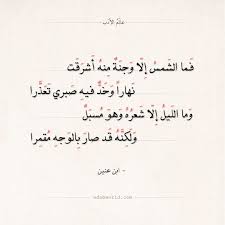 عالم الأدب
فَما الشَمسُ إِلّا وَجنَةٌ مِنهُ أَشرَقَت
نَهاراً وَخَدٌّ فيهِ صَبري تَعَذَّرا
وَما اللَيلُ إِلّا شَعرُهُ وَهوَ مُسبَلٌ
وَلَكِنَّهُ قَد صارَ بِالوَجهِ مُقمِرا
- ابن عنين -
adabworld.com